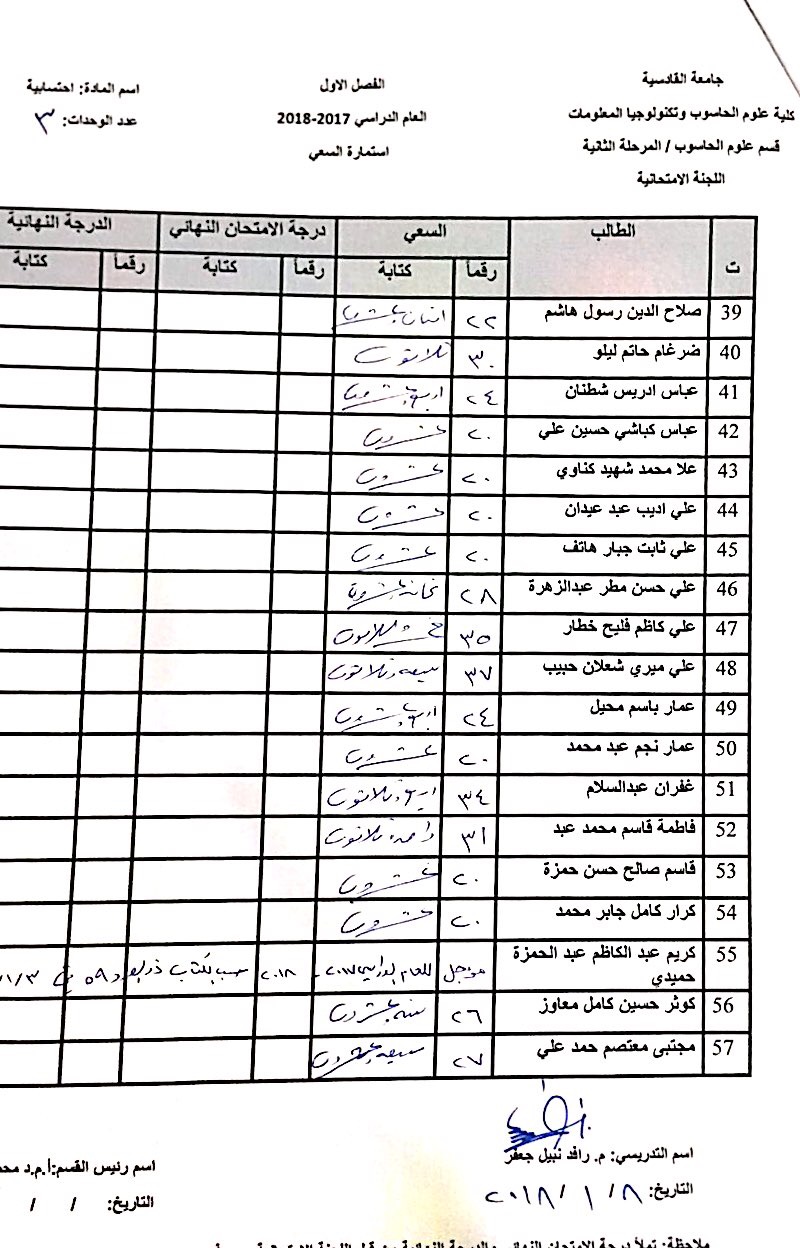 جامعة القادسية
كلية علوم الحاسوب وتكنولوجيا المعلومات
قسم علوم الحاسوب / المرحلة الثانية
اللجنة الامتحانية
الفصل الاول
العام الدراسي 2017-2018
استمارة السعي
اسم المادة: احتسابية
عدد الوحدات: ٣
ت الطالب السعي درجة الامتحان النهائي الدرجة النهائية
رقماً كتابة رقماً كتابة رقماً كتابة
39 صلاح الدين رسول هاشم ٢٢ اثنان وعشرون
40 ضرغام حاتم ليلو ٣٠ ثلاثون
41 عباس ادريس شطنان ٢٤ اربعة وعشرون
42 عباس كباشي حسين علي ٢٠ عشرون
43 علا محمد شهيد كناوي ٢٠ عشرون
44 علي اديب عبد عيدان ٢٠ عشرون
45 علي ثابت جبار هاتف ٢٠ عشرون
46 علي حسن مطر عبدالزهرة ٢٨ ثمانية وعشرون
47 علي كاظم فليح خطار ٣٥ خمسة وثلاثون
48 علي ميري شعلان حبيب ٣٧ سبعة وثلاثون
49 عمار باسم محيل ٢٤ اربعة وعشرون
50 عمار نجم عبد محمد ٢٠ عشرون
51 غفران عبدالسلام ٣٤ اربعة وثلاثون
52 فاطمة قاسم محمد عبد ٣١ واحد وثلاثون
53 قاسم صالح حسن حمزة ٢٠ عشرون
54 كرار كامل جابر محمد ٢٠ عشرون
55 كريم عبد الكاظم عبد الحمزة مؤجل للعام الدراسي ٢٠١٧ - ٢٠١٨ حسب الكتاب ذو العدد ٥٩ في
حميدي
56 كوثر حسين كامل معاوز ٢٦ ستة وعشرون
57 مجتبى معتصم حمد علي ٢٧ سبعة وعشرون
اسم التدريسي: م. رافد نبيل جعفر
التاريخ: ٨ / ١ / ٢٠١٨
اسم رئيس القسم: ا.م.د
التاريخ: / /
ملاحظة: تملأ درجة الامتحان النهائي والدرجة النهائية من قبل اللجنة الامتحانية